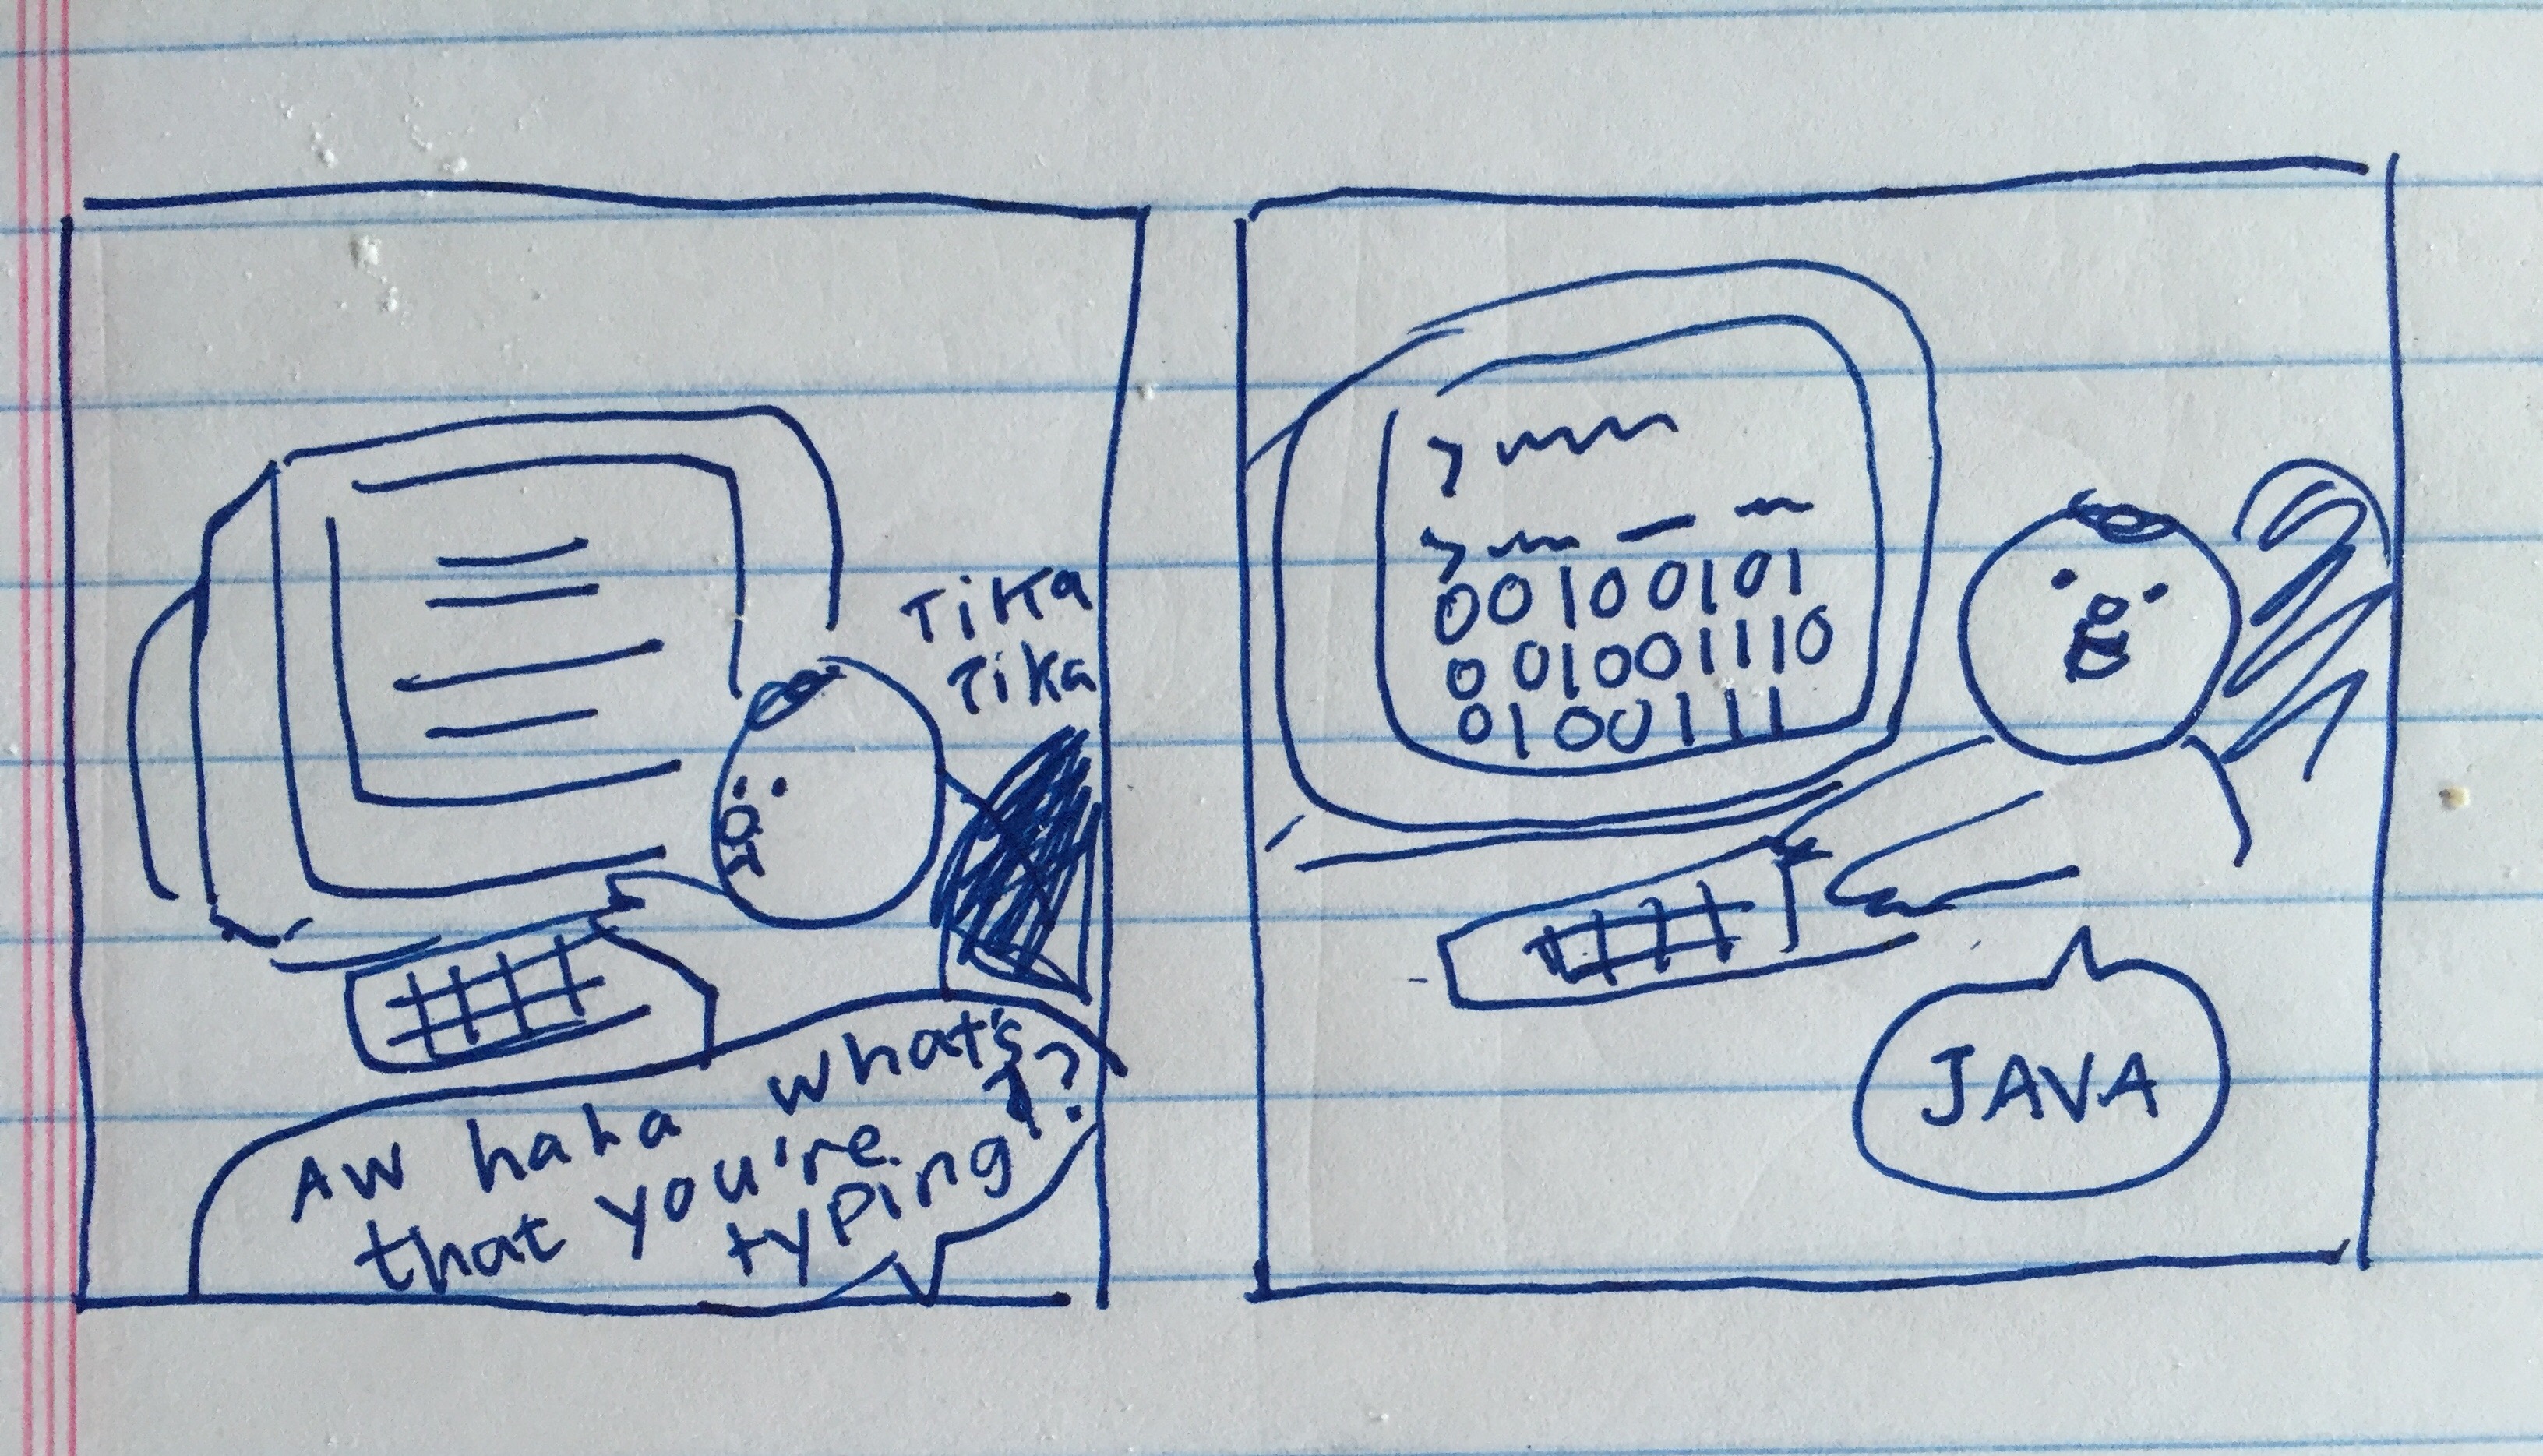 TiKa
TiKa
AW haha what's
that you're
typing?
00100101
0010011110
0100111
JAVA